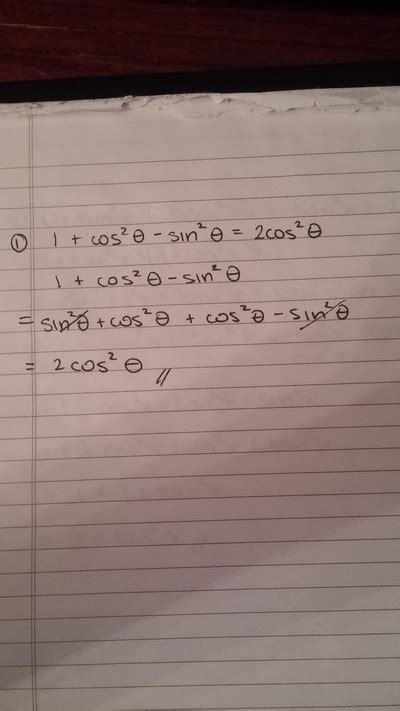 ① 1 + cos²θ - sin²θ = 2cos²θ
1 + cos²θ - sin²θ
= sin²θ + cos²θ + cos²θ - sin²θ
= 2cos²θ //